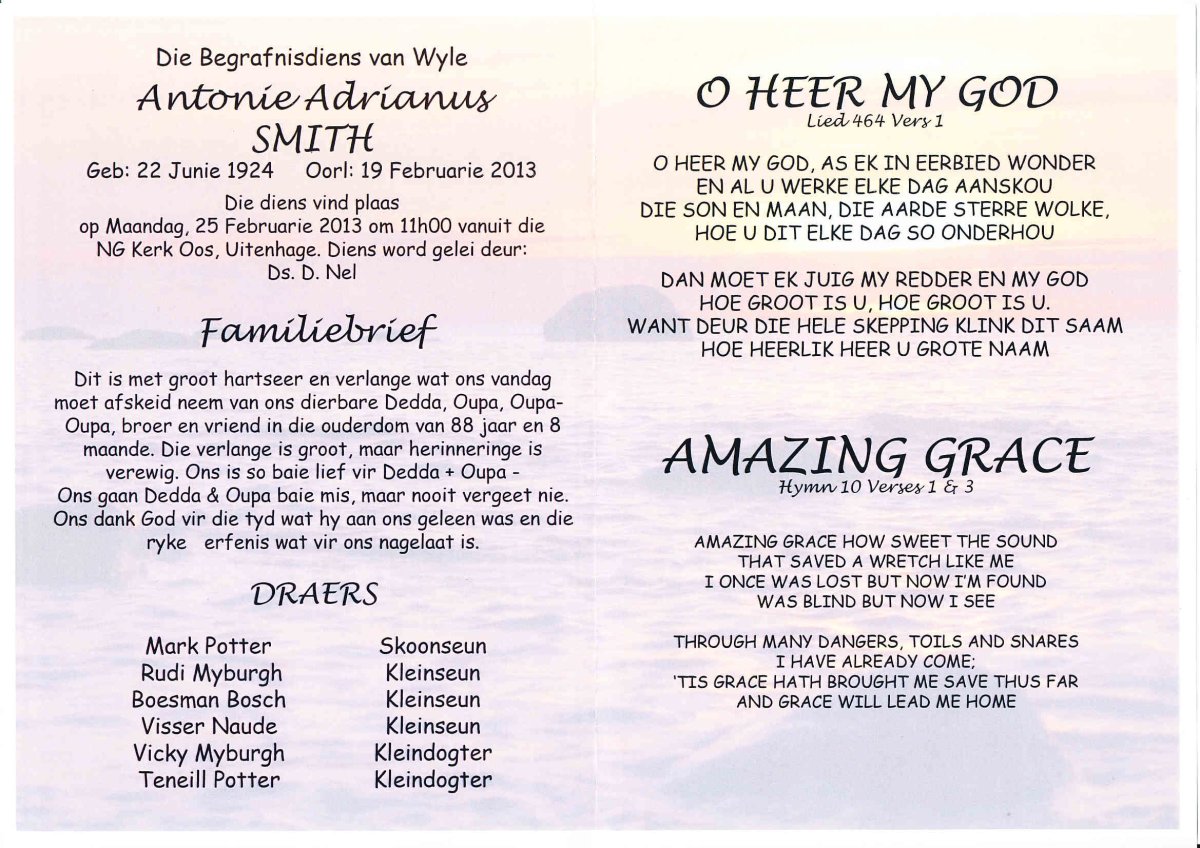 Die Begrafnisdiens van Wyle
Antonie Adrianus
SMITH
Geb: 22 Junie 1924 Oorl: 19 Februarie 2013
Die diens vind plaas
op Maandag, 25 Februarie 2013 om 11h00 vanuit die
NG Kerk Oos, Uitenhage. Diens word gelei deur:
Ds. D. Nel
Familiebrief
Dit is met groot hartseer en verlange wat ons vandag
moet afskeid neem van ons dierbare Dedda, Oupa, Oupa-
Oupa, broer en vriend in die ouderdom van 88 jaar en 8
maande. Die verlange is groot, maar herinneringe is
verewig. Ons is so baie lief vir Dedda + Oupa -
Ons gaan Dedda & Oupa baie mis, maar nooit vergeet nie.
Ons dank God vir die tyd wat hy aan ons geleen was en die
ryke erfenis wat vir ons nagelaat is.
DRAERS
Mark Potter Skoonseun
Rudi Myburgh Kleinseun
Boesman Bosch Kleinseun
Visser Naude Kleinseun
Vicky Myburgh Kleindogter
Teneill Potter Kleindogter
O HEER MY GOD
Lied 464 Vers 1
O HEER MY GOD, AS EK IN EERBIED WONDER
EN AL U WERKE ELKE DAG AANSKOU
DIE SON EN MAAN, DIE AARDE STERRE WOLKE,
HOE U DIT ELKE DAG SO ONDERHOU
DAN MOET EK JUIG MY REDDER EN MY GOD
HOE GROOT IS U, HOE GROOT IS U.
WANT DEUR DIE HELE SKEPPING KLINK DIT SAAM
HOE HEERLIK HEER U GROTE NAAM
AMAZING GRACE
Hymn 10 Verses 1 & 3
AMAZING GRACE HOW SWEET THE SOUND
THAT SAVED A WRETCH LIKE ME
I ONCE WAS LOST BUT NOW I'M FOUND
WAS BLIND BUT NOW I SEE
THROUGH MANY DANGERS, TOILS AND SNARES
I HAVE ALREADY COME;
'TIS GRACE HATH BROUGHT ME SAVE THUS FAR
AND GRACE WILL LEAD ME HOME